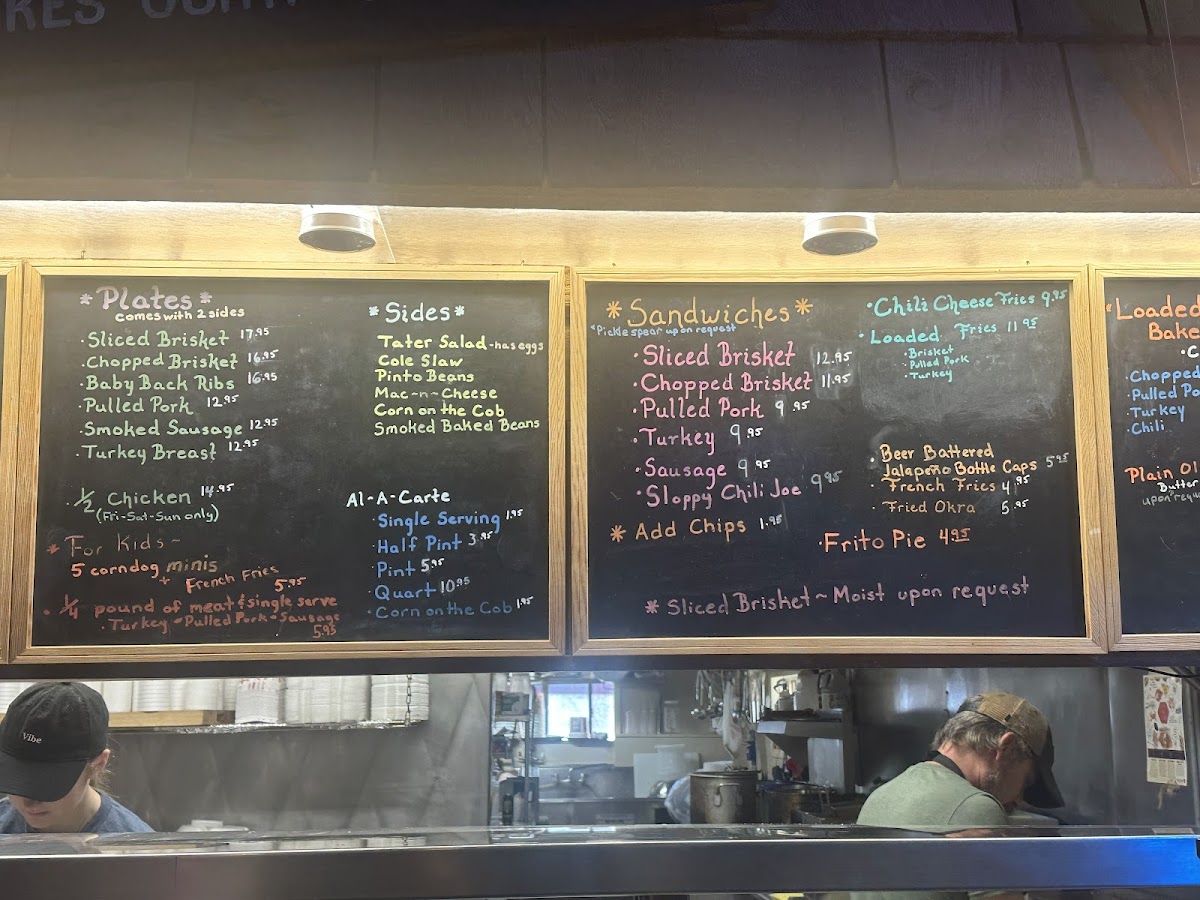 *Plates*
comes with 2 sides
·Sliced Brisket 17.95
·Chopped Brisket 16.95
·Baby Back Ribs 16.95
·Pulled Pork 12.95
·Smoked Sausage 12.95
·Turkey Breast 12.95
·½ Chicken 14.95
(Fri-Sat-Sun only)
* For Kids~
5 corndog minis
+ French Fries
5.95
· ¼ pound of meat & single serve
·Turkey ·Pulled Pork ·Sausage
5.95
*Sides*
Tater Salad -has eggs
Cole Slaw
Pinto Beans
Mac-n-Cheese
Corn on the Cob
Smoked Baked Beans
Al-A-Carte
·Single Serving 1.95
·Half Pint 3.95
·Pint 5.95
·Quart 10.95
·Corn on the Cob 1.95
*Sandwiches*
*Pickle spear upon request
·Sliced Brisket 12.95
·Chopped Brisket 11.95
·Pulled Pork 9.95
·Turkey 9.95
·Sausage 9.95
·Sloppy Chili Joe 9.95
* Add Chips 1.95
·Chili Cheese Fries 9.95
·Loaded Fries 11.95
·Brisket
·Pulled Pork
·Turkey
·Beer Battered
Jalapeño Bottle Caps 5.95
·French Fries 4.95
·Fried Okra 5.95
·Frito Pie 4.95
* Sliced Brisket ~ Moist upon request
Loaded
Bake
·C
·Chopped
·Pulled Po
·Turkey
·Chili
Plain Ol
Butter
upon requ
Vibe